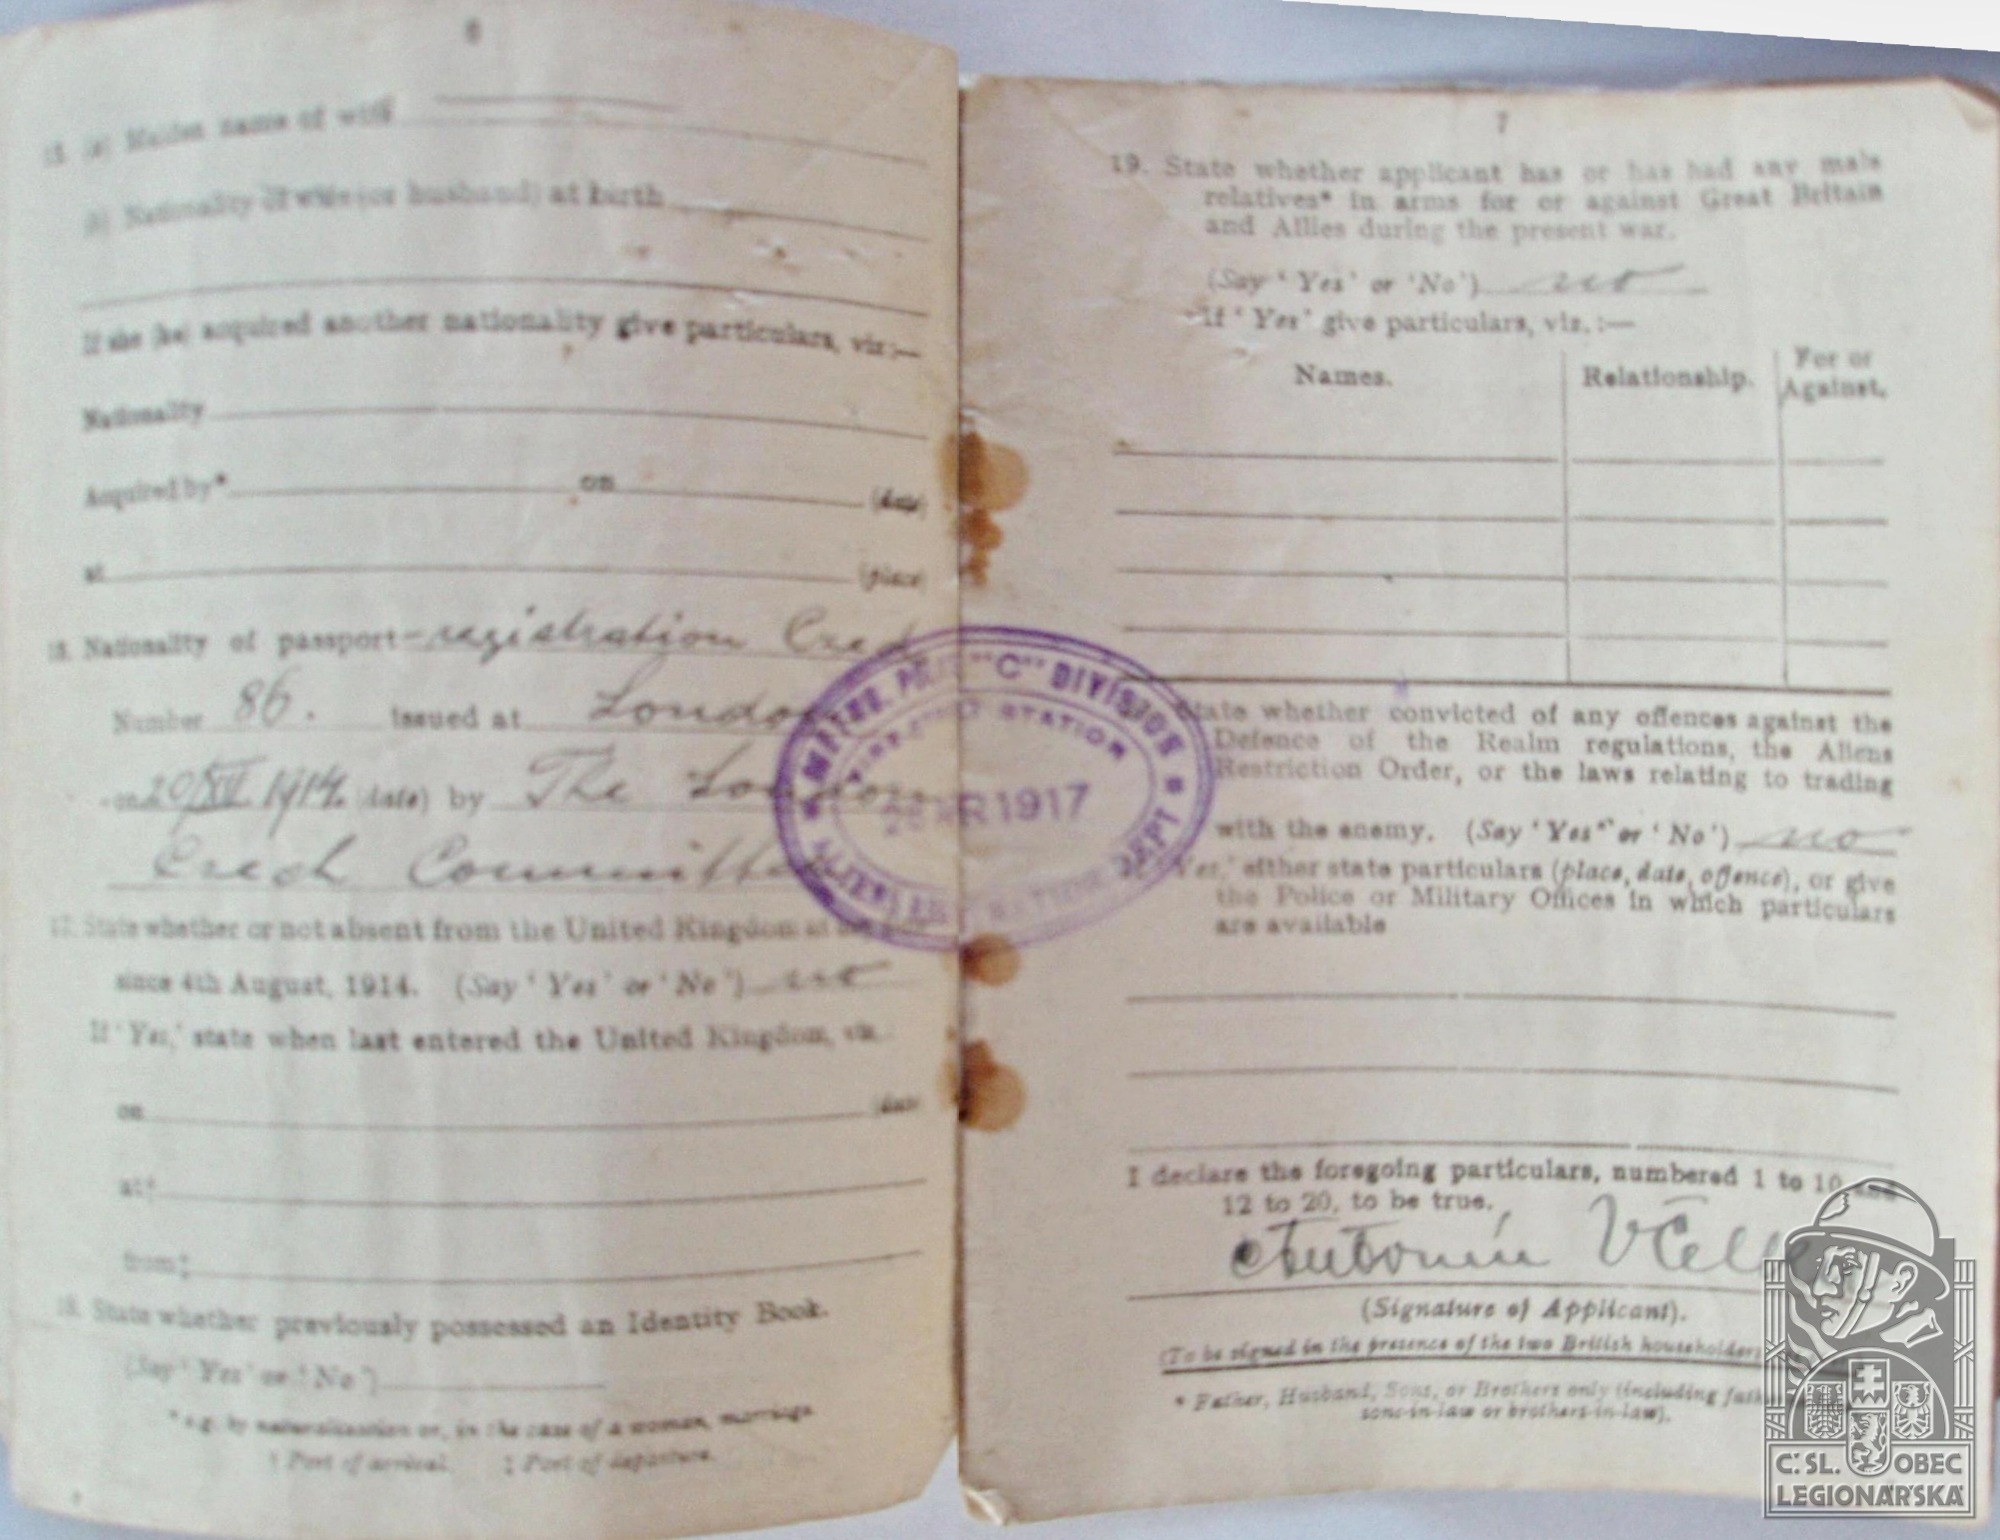 6
15. (a) Maiden name of wife
(b) Nationality of wife (or husband) at birth
If she (he) acquired another nationality give particulars, viz:—
Nationality
Acquired by* on (date)
at (place)
16. Nationality of passport – registration Czech
Number 86. issued at London
on 20/XII 1914. (date) by The London
Czech Committee
17. State whether or not absent from the United Kingdom at any time
since 4th August, 1914. (Say 'Yes' or 'No') no
If 'Yes,' state when last entered the United Kingdom, viz.
on (date)
at†
from‡
18. State whether previously possessed an Identity Book.
(Say 'Yes' or 'No')
* e.g. by naturalization or, in the case of a woman, marriage
† Port of arrival ‡ Port of departure.
"C" DIVISION
STATION
1917
DEPT
7
19. State whether applicant has or has had any male
relatives* in arms for or against Great Britain
and Allies during the present war.
(Say 'Yes' or 'No') no
If 'Yes' give particulars, viz.:—
Names. Relationship. For or
Against.
State whether convicted of any offences against the
Defence of the Realm regulations, the Aliens
Restriction Order, or the laws relating to trading
with the enemy. (Say 'Yes' or 'No') no
Yes,' either state particulars (place, date, offence), or give
the Police or Military Offices in which particulars
are available
I declare the foregoing particulars, numbered 1 to 10 and
12 to 20, to be true.
Antonín
(Signature of Applicant).
(To be signed in the presence of the two British householders
* Father, Husband, Sons, or Brothers only (including
sons-in-law or brothers-in-law).
Č.SL. OBEC
LEGIONÁŘSKÁ